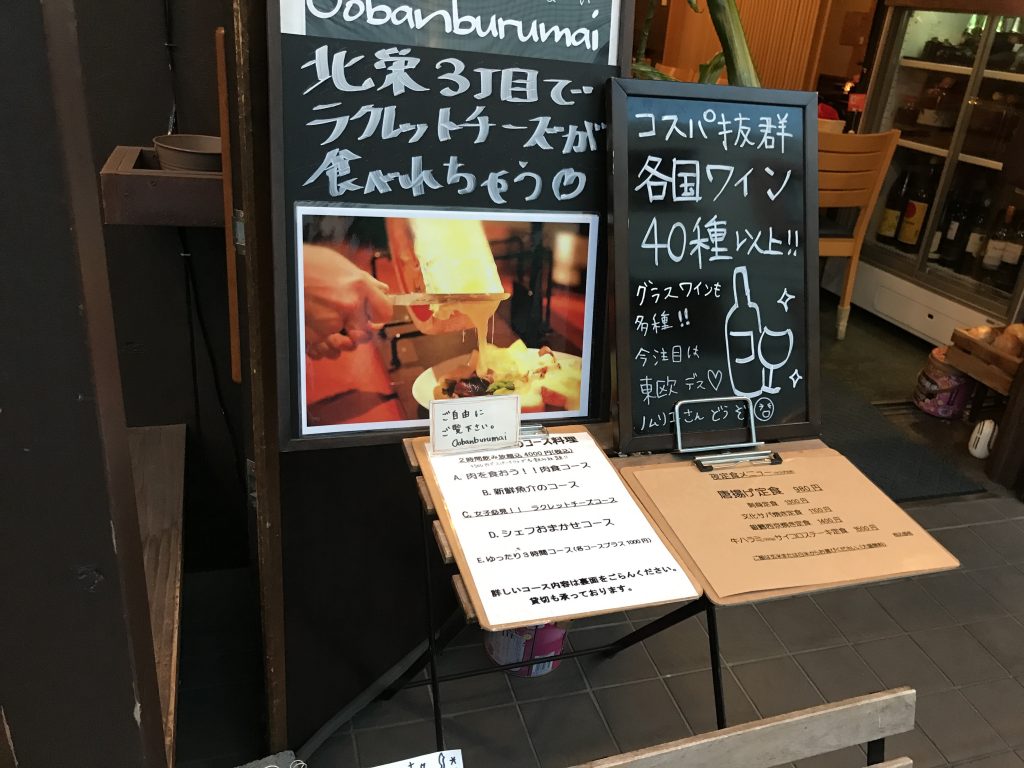 Oobanburumai
北栄3丁目で
ラクレットチーズが
食べれちゃう
コスパ抜群
各国ワイン
40種以上!!
グラスワインも
多種!!
今注目は
東欧デス♡
ソムリエさんどうぞ
ご自由に
ご覧下さい。
Oobanburumai
のコース料理
2時間飲み放題込4000円(税込)
A. 肉を食おう！！肉食コース
B. 新鮮魚介のコース
C. 女子必見！！ ラクレットチーズコース
D. シェフおまかせコース
E. ゆったり3時間コース(各コースプラス1000円)
詳しいコース内容は裏面をごらんください。
貸切も承っております。
夜定食メニュー
唐揚げ定食 980円
刺身定食 1300円
文化サバ焼き定食
銀鱈西京焼き定食 1400円
牛ハラミサイコロステーキ定食 1500円